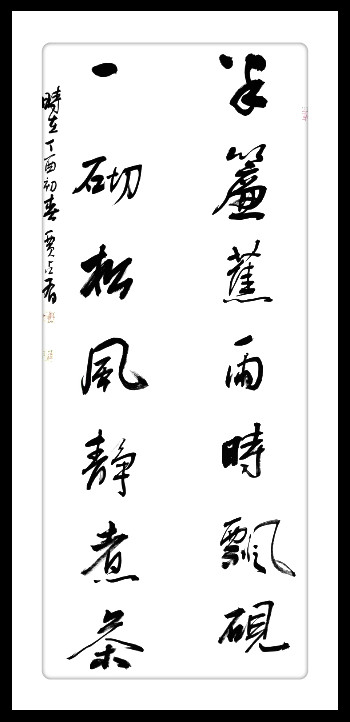 半簾蕉雨時飄硯
一砌松風静煮茶
時在丁酉初春賈